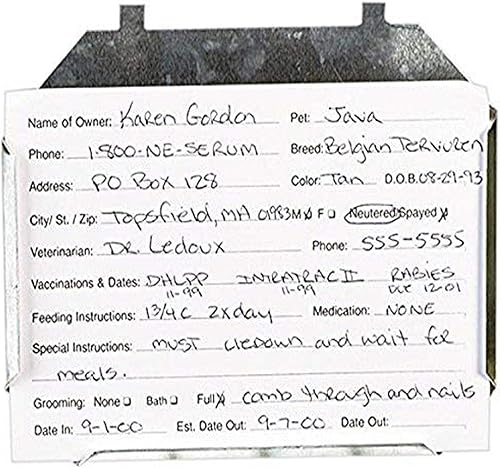 Name of Owner: Karen Gordon Pet: Java
Phone: 1-800-NE-SERUM Breed: Belgian Tervuren
Address: PO Box 128 Color: Tan D.O.B. 08-29-93
City/ St. / Zip: Topsfield, MA 01983 M ☒ F ☐ Neutered/Spayed ☒
Veterinarian: DR Ledoux Phone: 555-5555
Vaccinations & Dates: DHLPP INTRATRAC II RABIES
11-99 11-99 DUE 12-01
Feeding Instructions: 1 3/4 C 2x day Medication: NONE
Special Instructions: MUST liedown and wait for
meals.
Grooming: None ☐ Bath ☐ Full ☒ comb through and nails
Date In: 9-1-00 Est. Date Out: 9-7-00 Date Out: